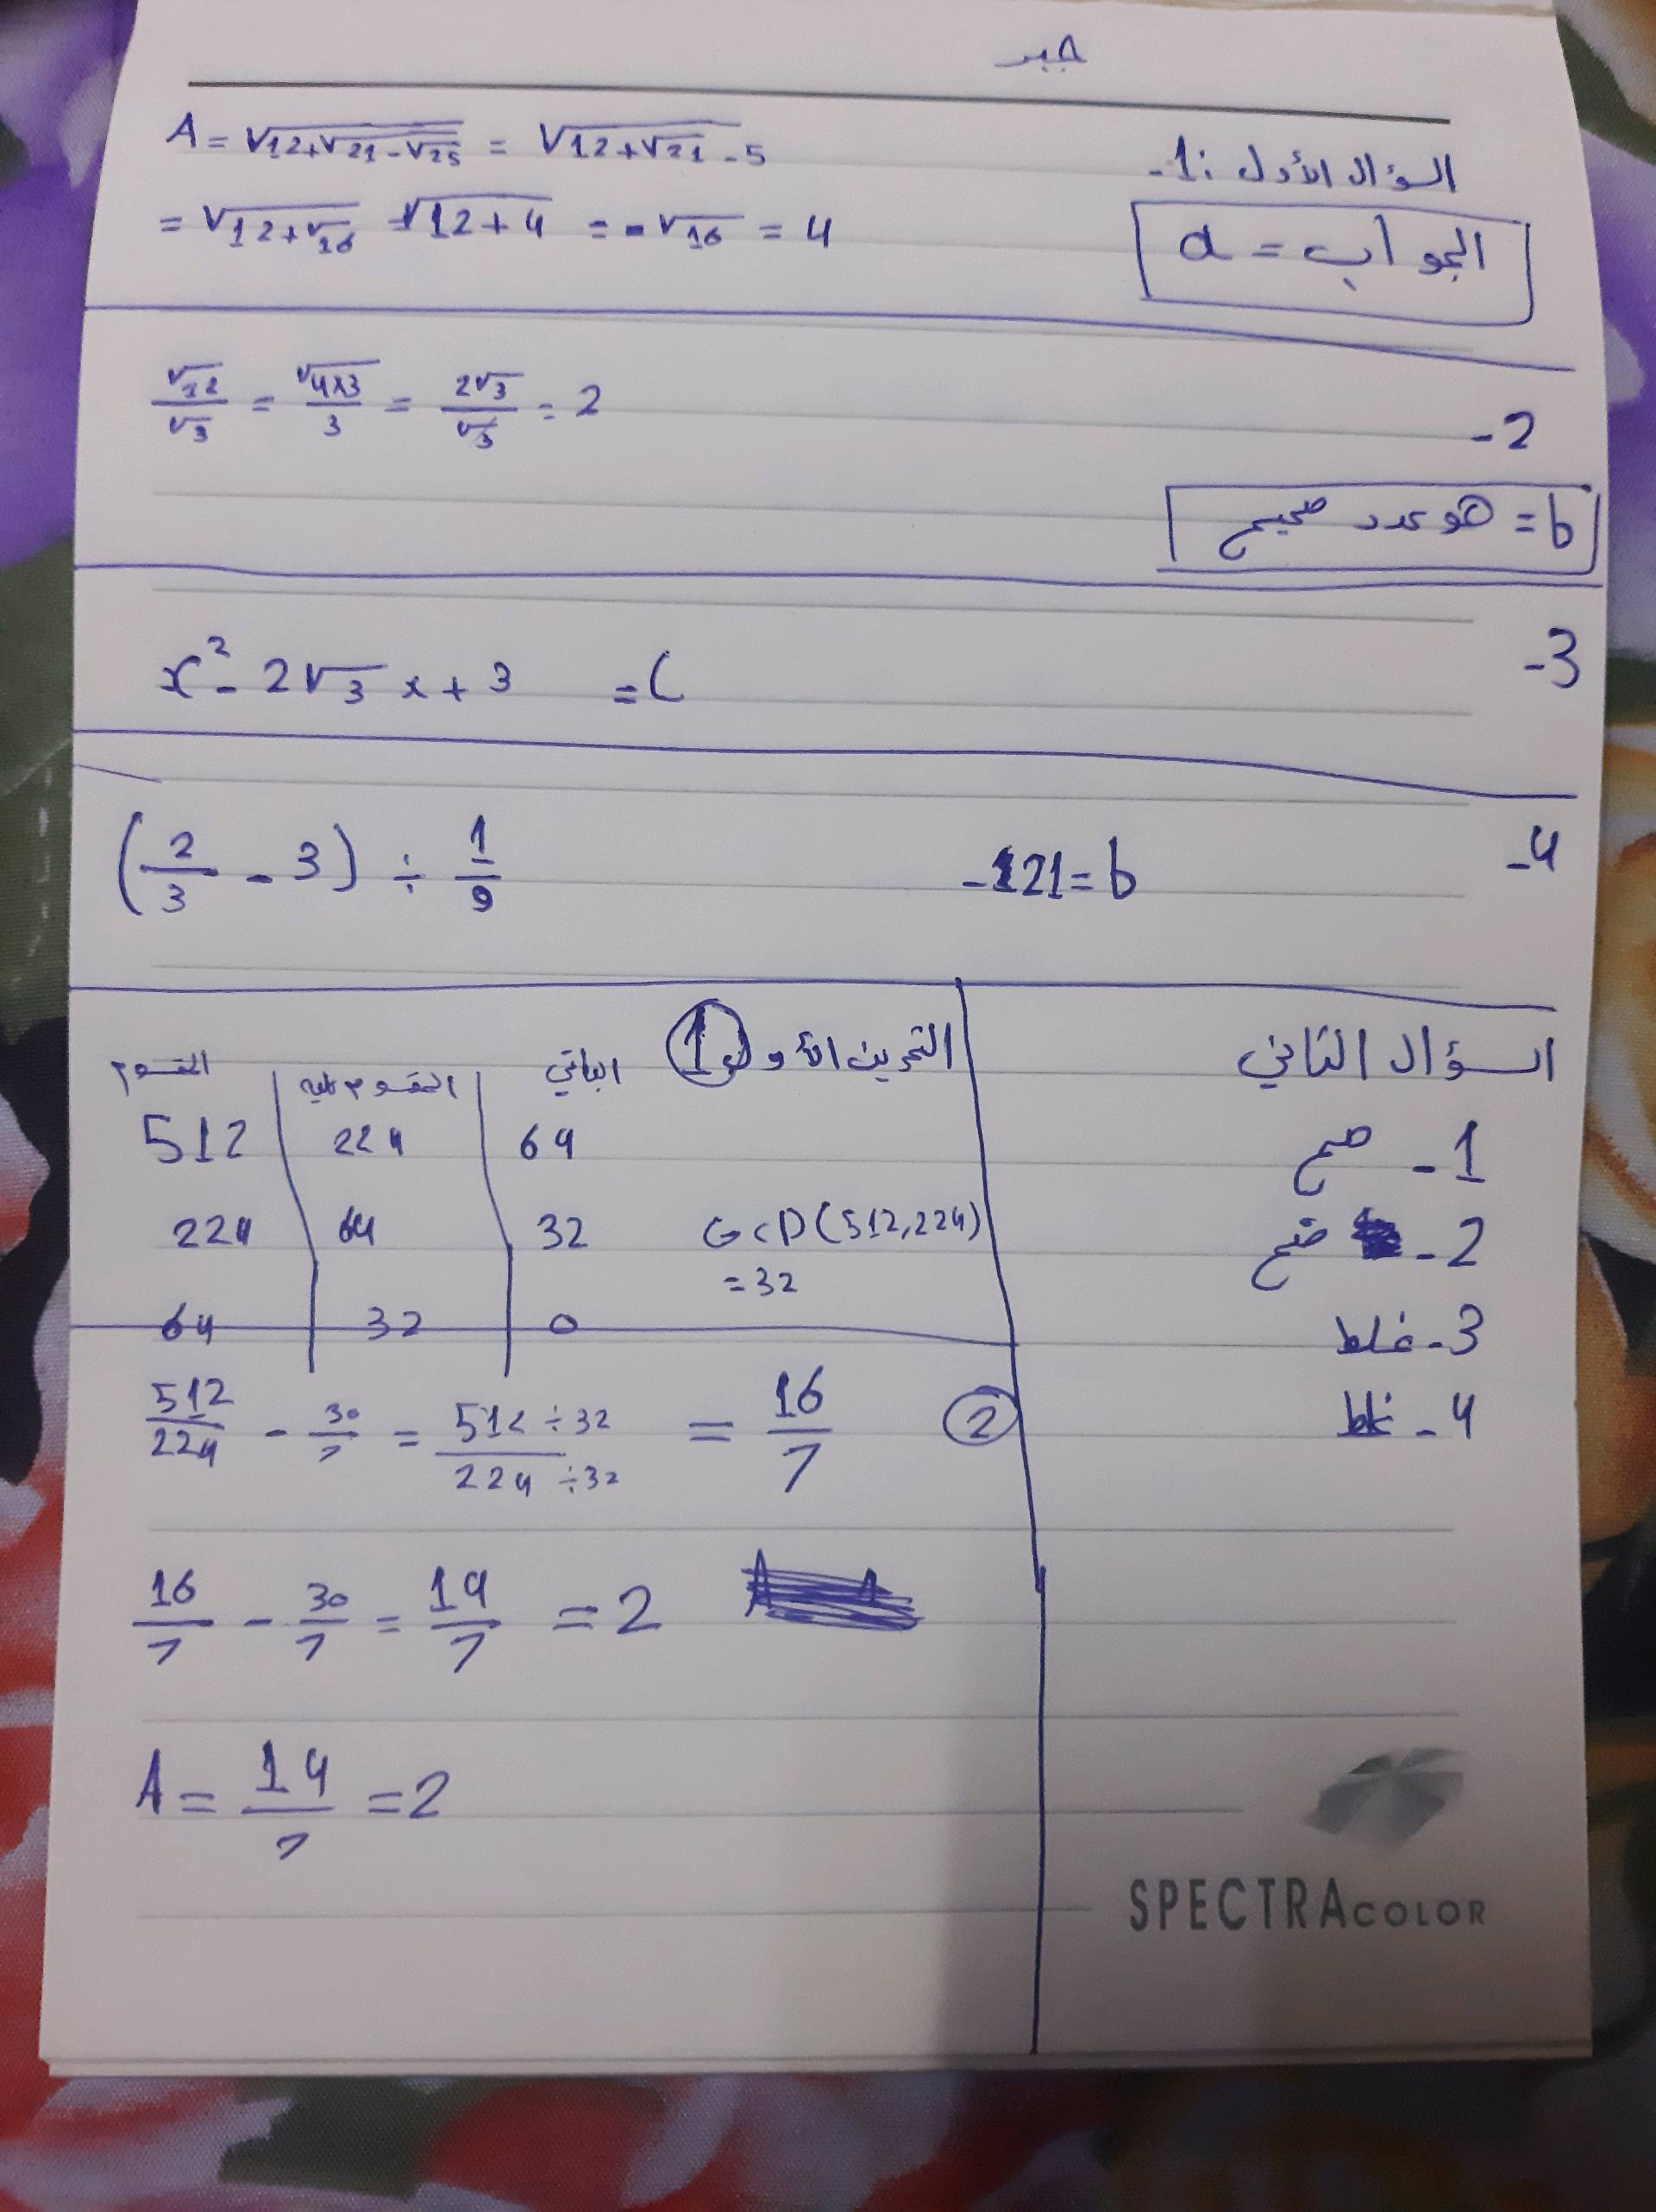 جبر
السؤال الأول :1-
A = √12+√21-√25 = √12+√21-5
= √12+√16 √12+4 = -√16 = 4
الجواب = a
2-
√12/√3 = √4×3/3 = 2√3/√3 = 2
b = هو عدد صحيح
3-
x² - 2√3 x + 3 = C
4-
(2/3 - 3) ÷ 1/9
-21 = b
السؤال الثاني
1- صح
2- صح
3- غلط
4- غلط
التمرين الأول 1
المقسوم المقسوم عليه الباقي
512 224 64
224 64 32
GCD(512,224)
= 32
64 32 0
2
512/224 - 30/7 = 512÷32/224÷32 = 16/7
16/7 - 30/7 = 14/7 = 2
A = 14/7 = 2
SPECTRACOLOR